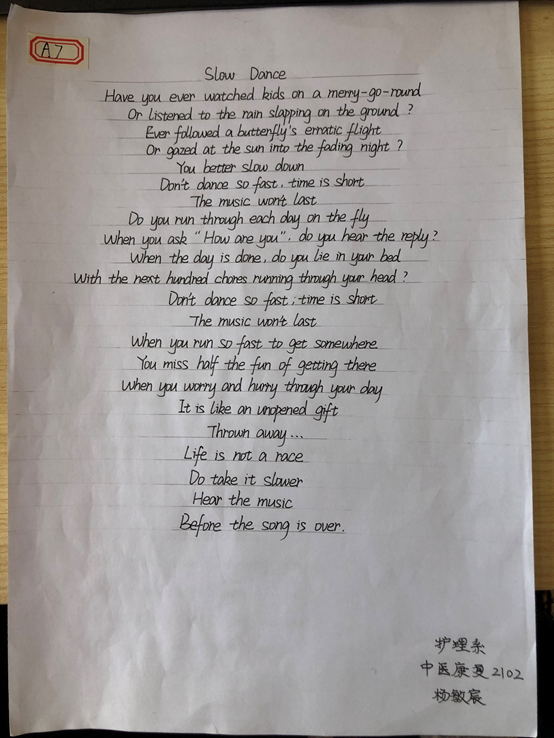 A7
Slow Dance
Have you ever watched kids on a merry-go-round
Or listened to the rain slapping on the ground ?
Ever followed a butterfly's erratic flight
Or gazed at the sun into the fading night ?
You better slow down
Don't dance so fast, time is short
The music won't last
Do you run through each day on the fly
When you ask "How are you", do you hear the reply?
When the day is done, do you lie in your bed
With the next hundred chores running through your head ?
Don't dance so fast; time is short
The music won't last
When you run so fast to get somewhere
You miss half the fun of getting there
When you worry and hurry through your day
It is like an unopened gift
Thrown away...
Life is not a race
Do take it slower
Hear the music
Before the song is over.
护理系
中医康复2102
杨敏宸